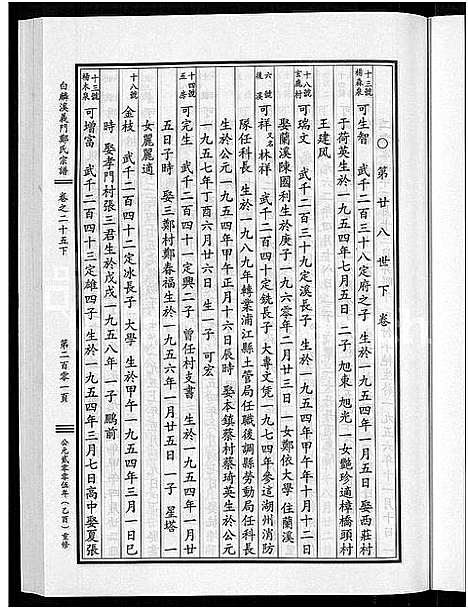 ○第廿八世下卷
十三號
楊森泉
可生智 武千二百三十八定府之子 生於一九五四年一月五日 娶西莊村
于荷英生於一九五四年七月五日 二子 旭東 旭光 一女艷珍適樟橋頭村
王建风
十八號
玄鹿村
可瑞文 武千二百三十九定溪長子 生於一九五四年甲午年十月十二日
娶蘭溪陳國利生於庚子一九六零年二月廿三日 一女鄭依大學 住蘭溪
六號
後溪
可祥 又名林祥 武千二百四十定銑長子 大專文凭 一九七四年參這湖州消防
隊任科長 生於一九八九年轉業浦江縣土管局任職後調縣勞動局任科長
生於公元一九五四年甲午正月十六日辰時 娶本鎮蔡村蔡琦英生於公元
一九五七年丁酉六月廿六日 生一子 可宏
十四號
五房
武千二百四十一定興二子 曾任村支書 生於一九五四年一月
五日子時 娶三鄭村鄭春福生於一九五六年一月廿五日 一子 星塔 一
女麗麗適
十八號
金枝 武千二百四十二定冰長子 大學 生於甲午一九五四年三月一日巳
時 娶孝門村張三君生於戊戌一九五八年 一子 鵬前
十三號
楊木泉
可增富 武千二百四十三定雄四子 生於一九五四年三月七日高中 娶夏張
白麟溪義門鄭氏宗譜
卷之二十五下
第二百零一頁
公元貳零零伍年(乙酉)重修